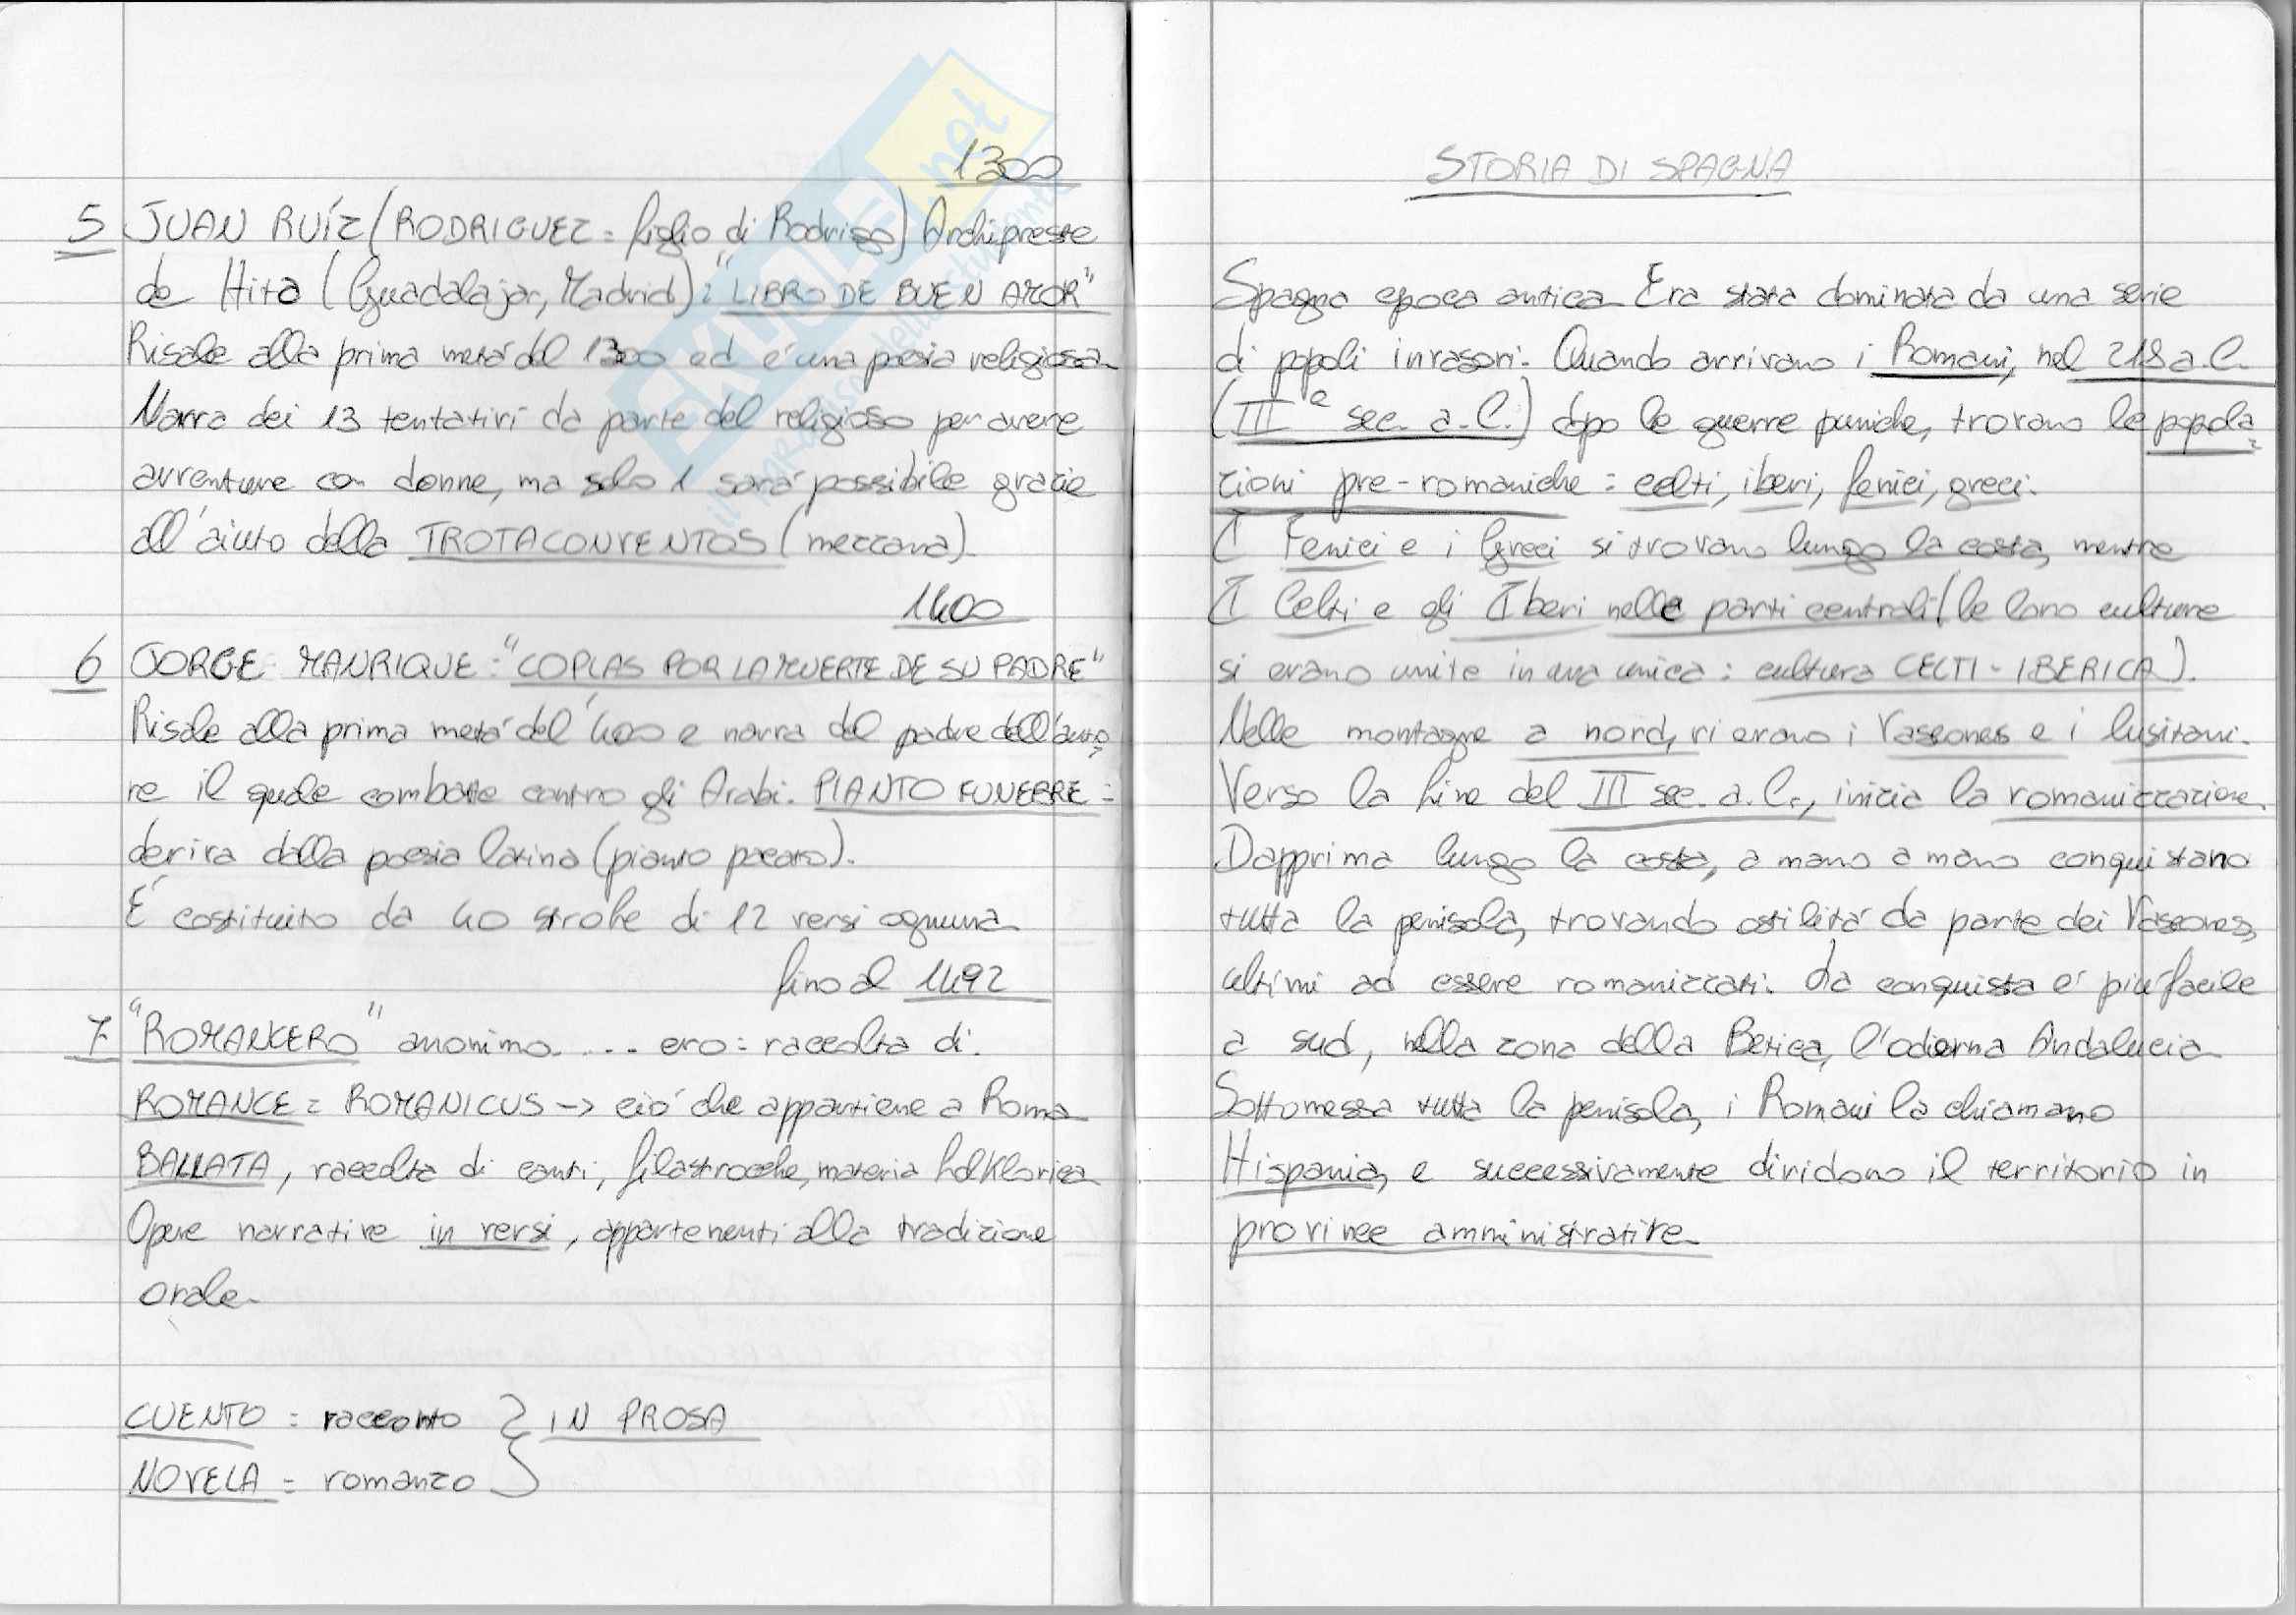 1300
5 JUAN RUÍZ (RODRIGUEZ = figlio di Rodrigo) Archipreste
de Hita (Guadalajar, Madrid): "LIBRO DE BUEN AMOR"
Risale alla prima metá del 1300 ed é una poesia religiosa
Narra dei 13 tentativi da parte del religioso per avere
avventure con donne, ma solo 1 sará possibile grazie
all'aiuto della TROTACONVENTOS (mezzana).
1400
6 JORGE MANRIQUE: "COPLAS POR LA MUERTE DE SU PADRE"
Risale alla prima metá del '400 e narra del padre dell'auto
re il quale combatte contro gli Arabi. PIANTO FUNEBRE =
deriva dalla poesia latina (pianto pacato).
É costituito da 40 strofe di 12 versi ognuna
fino al 1492
7 "ROMANCERO" anonimo. ... ero = raccolta di.
ROMANCE = ROMANICUS -> ció che appartiene a Roma
BALLATA, raccolta di canti, filastrocche, materia folklorica
Opere narrative in versi, appartenenti alla tradizione
orale
CUENTO = racconto } IN PROSA
NOVELA = romanzo
STORIA DI SPAGNA
Spagna epoca antica Era stata dominata da una serie
di popoli invasori. Quando arrivano i Romani, nel 218 a.C.
(III° sec. a.C.) dopo le guerre puniche, trovano le popola
zioni pre-romaniche: celti, iberi, fenici, greci.
I Fenici e i Greci si trovano lungo la costa, mentre
I Celti e gli Iberi nelle parti centrali (le loro culture
si erano unite in una unica: cultura CELTI-IBERICA).
Nelle montagne a nord, vi erano i Vascones e i lusitani.
Verso la fine del III sec. a.C., inizia la romanizzazione.
Dapprima lungo la costa, a mano a mano conquistano
tutta la penisola, trovando ostilitá da parte dei Vascones,
ultimi ad essere romanizzati. La conquista é piú facile
a sud, nella zona della Betica, l'odierna Andalucia
Sottomessa tutta la penisola, i Romani la chiamano
Hispania, e successivamente dividono il territorio in
province amministrative
SKUOLA.net